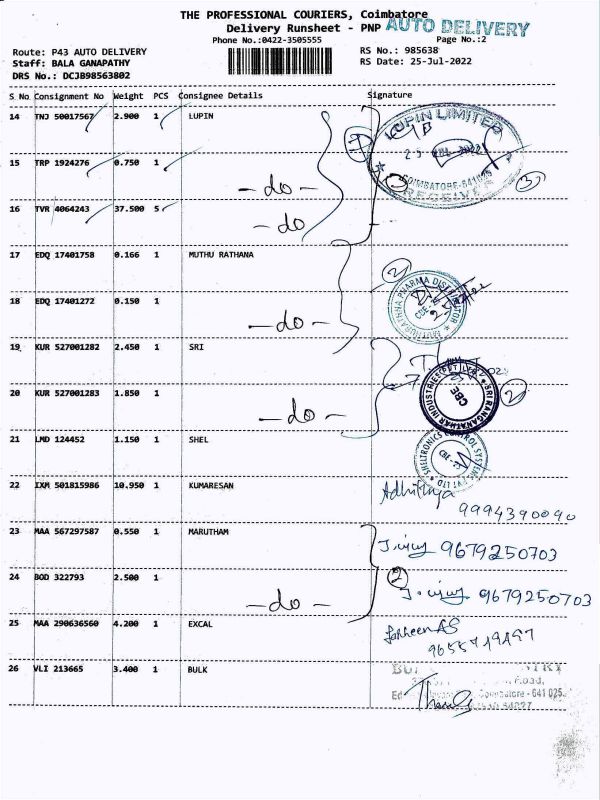 THE PROFESSIONAL COURIERS, Coimbatore
Delivery Runsheet - PNP AUTO DELIVERY
Phone No.:0422-3505555 Page No.:2
Route: P43 AUTO DELIVERY RS No.: 985638
Staff: BALA GANAPATHY RS Date: 25-Jul-2022
DRS No.: DCJB98563802
S No Consignment No Weight PCS Consignee Details Signature
14 TNJ 50017567 2.900 1 LUPIN
LUPIN LIMITED
COIMBATORE-641
RECEIVED
15 TRP 1924276 0.750 1 -do-
3
16 TVR 4064243 37.500 5 -do-
17 EDQ 17401758 0.166 1 MUTHU RATHANA
2
MUTHURATHNA PHARMA DISTRIBUTOR
CBE
18 EDQ 17401272 0.150 1 -do-
19 KUR 527001282 2.450 1 SRI
SRI RANGANATHAR INDUSTRIES PVT LTD
CBE
2
20 KUR 527001283 1.850 1 -do-
21 LMD 124452 1.150 1 SHEL
SHELTRONICS CONTROL SYSTEMS PVT LTD
22 IXM 501815986 10.950 1 KUMARESAN
9994390090
23 MAA 567297587 0.550 1 MARUTHAM
9679250703
24 BOD 322793 2.500 1 -do-
2
9679250703
25 MAA 290636560 4.200 1 EXCAL
26 VLI 213665 3.400 1 BULK
Road,
Coimbatore - 641 025